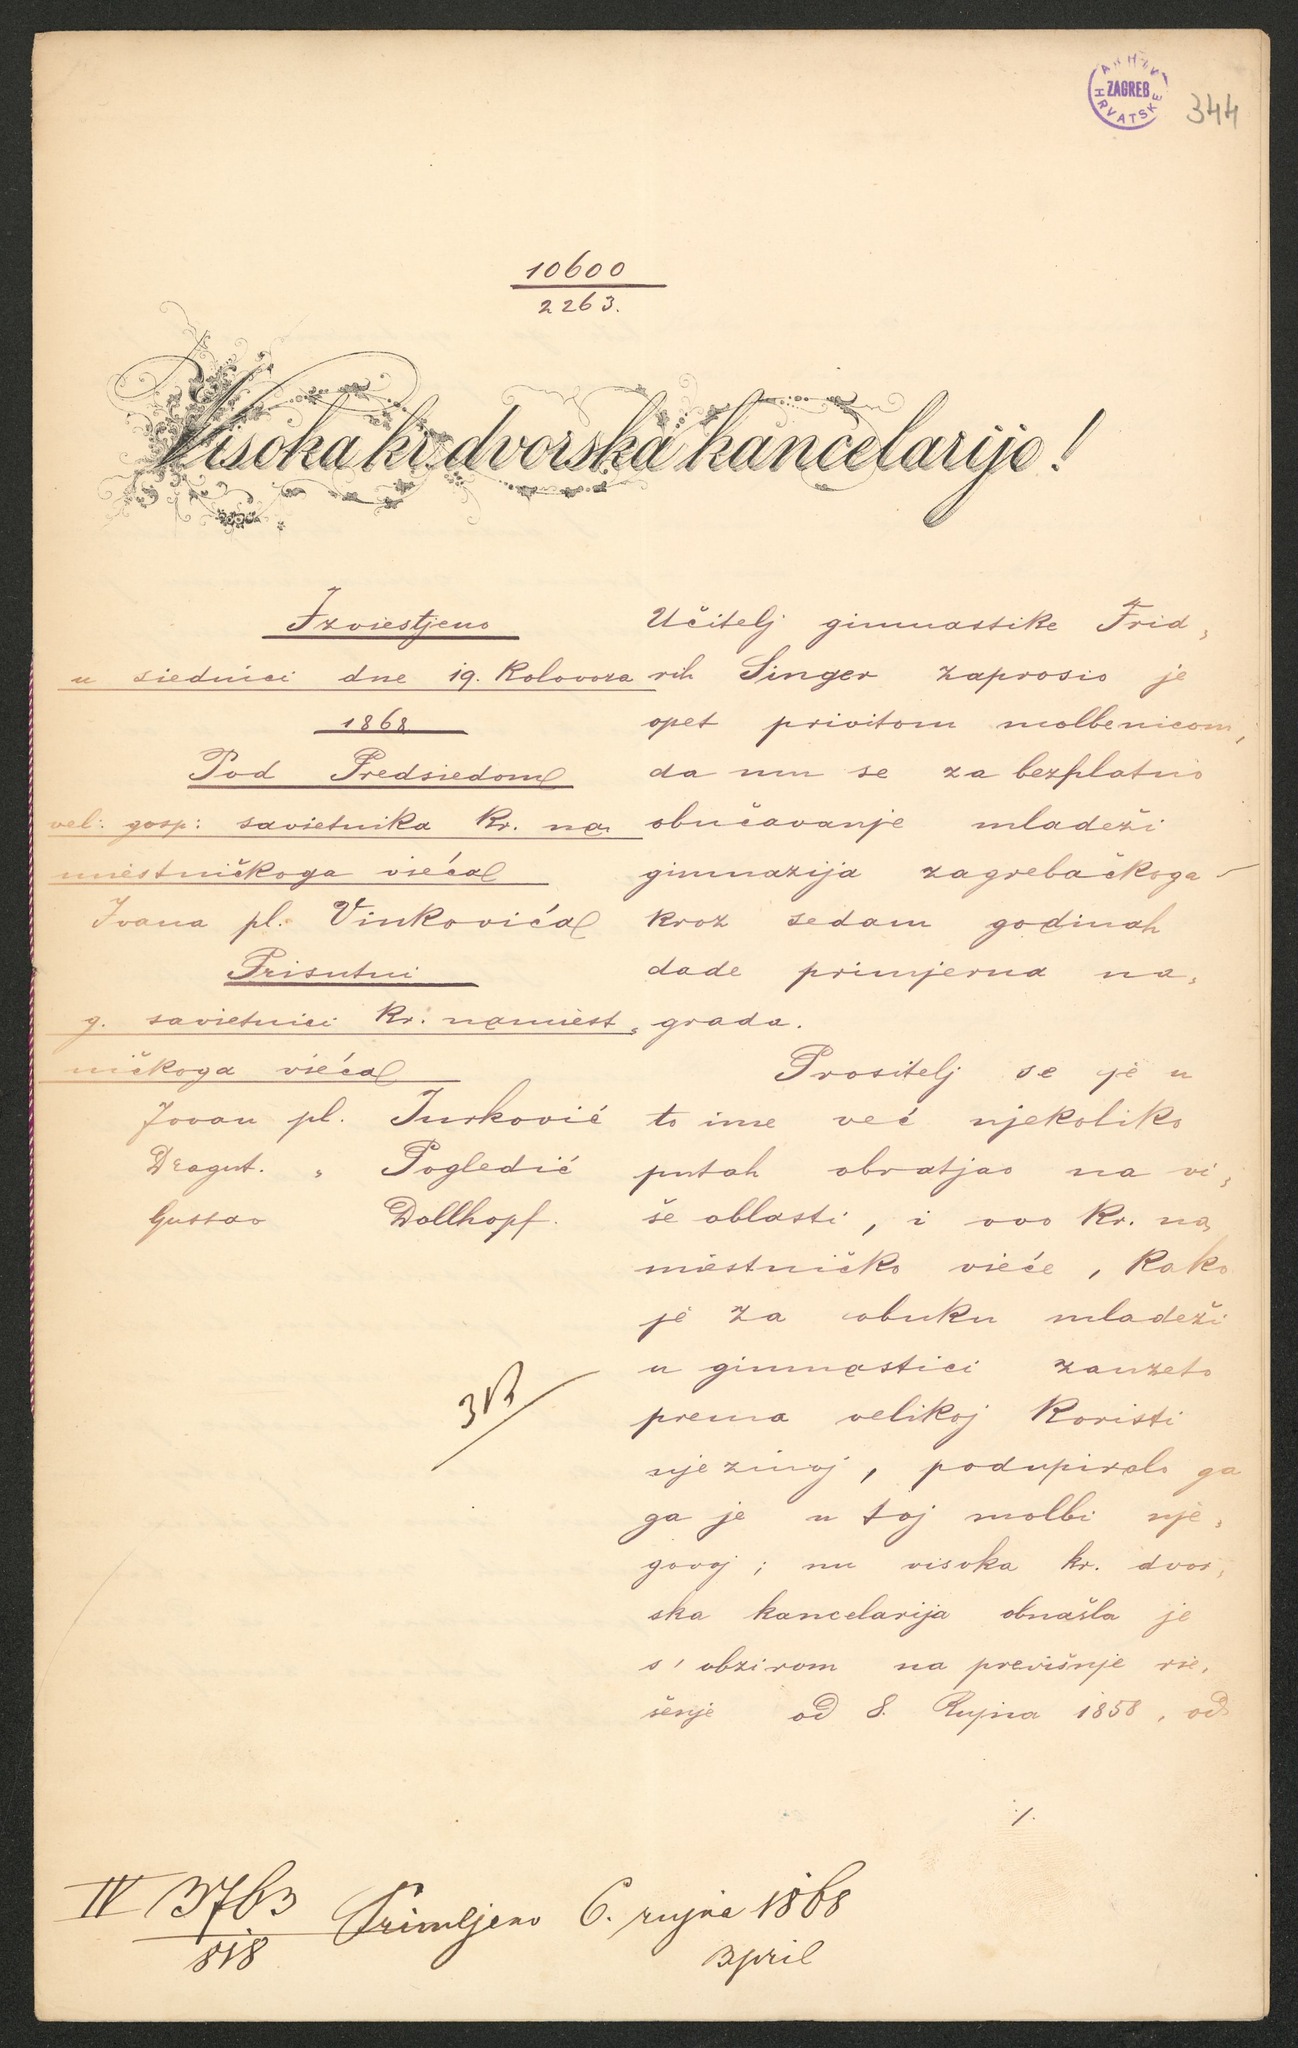 ARHIV HRVATSKE
ZAGREB
344
10600
2263.
Visoka kr. dvorska kancelarijo!
Izviestjeno
u siednici dne 19. Kolovoza
1868
Pod Predsiedom
vel: gosp: savietnika Kr. na„
miestničkoga vieća
Ivana pl. Vinkovića
Prisutni
g. savietnici Kr. namiest„
ničkoga vieća
Jovan pl. Jurković
Dragut. „ Pogledić
Gustav Dollhopf.
Učitelj gimnastike Frid„
rih Singer zaprosio je
opet privitom molbenicom,
da mu se za bezplatno
obučavanje mladeži
gimnazija zagrebačkoga
kroz sedam godinah
dade primjerna na„
grada.
Prositelj se je u
to ime već njekoliko
putah obratjao na vi„
še oblasti, i ovo Kr. na„
miestničko vieće, kako
je za obuku mladeži
u gimnastici zauzeto
prema velikoj koristi
njezinoj, podupiralo ga
ga je u toj molbi nje„
govoj; nu visoka kr. dvor„
ska kancelarija obnašla je
s' obzirom na previšnje rie„
šenje od 8. Rujna 1858, od
./.
IV 3763
818
Primljeno 6. rujna 1868
3 pril